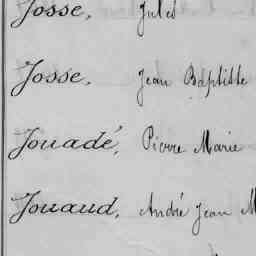 Josse, Jules
Josse, Jean Baptiste
Jouadé, Pierre Marie
Jouaud, André Jean M